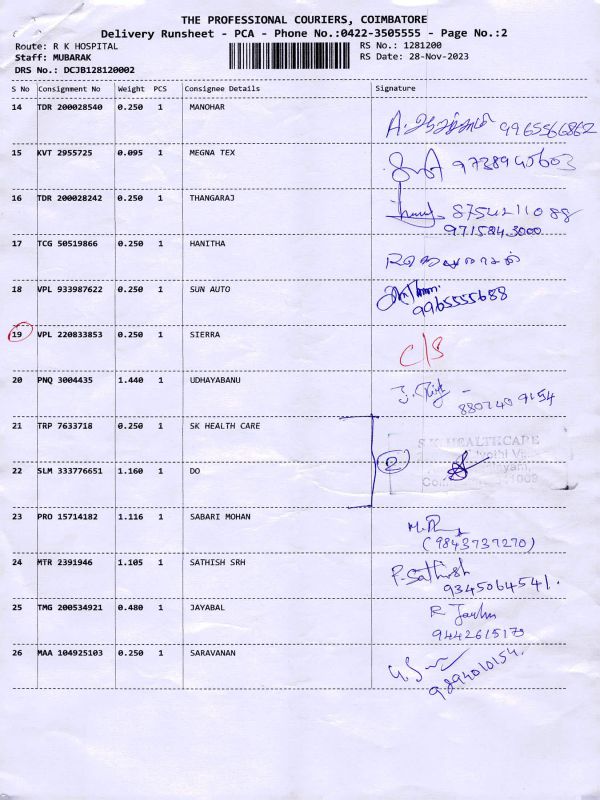 THE PROFESSIONAL COURIERS, COIMBATORE
Delivery Runsheet - PCA - Phone No.:0422-3505555 - Page No.:2
Route: R K HOSPITAL RS No.: 1281200
Staff: MUBARAK RS Date: 28-Nov-2023
DRS No.: DCJB128120002
S No Consignment No Weight PCS Consignee Details Signature
14 TDR 200028540 0.250 1 MANOHAR
9965566862
15 KVT 2955725 0.095 1 MEGNA TEX
9738945603
16 TDR 200028242 0.250 1 THANGARAJ
8754211088
9715843000
17 TCG 50519866 0.250 1 HANITHA
18 VPL 933987622 0.250 1 SUN AUTO
9965555688
19 VPL 220833853 0.250 1 SIERRA C/S
20 PNQ 3004435 1.440 1 UDHAYABANU
21 TRP 7633718 0.250 1 SK HEALTH CARE
S.K. HEALTHCARE
22 SLM 333776651 1.160 1 DO
23 PRO 15714182 1.116 1 SABARI MOHAN
(9843737270)
24 MTR 2391946 1.105 1 SATHISH SRH P. Sathish
9345064541.
25 TMG 200534921 0.480 1 JAYABAL
9442615173
26 MAA 104925103 0.250 1 SARAVANAN
9894010154.